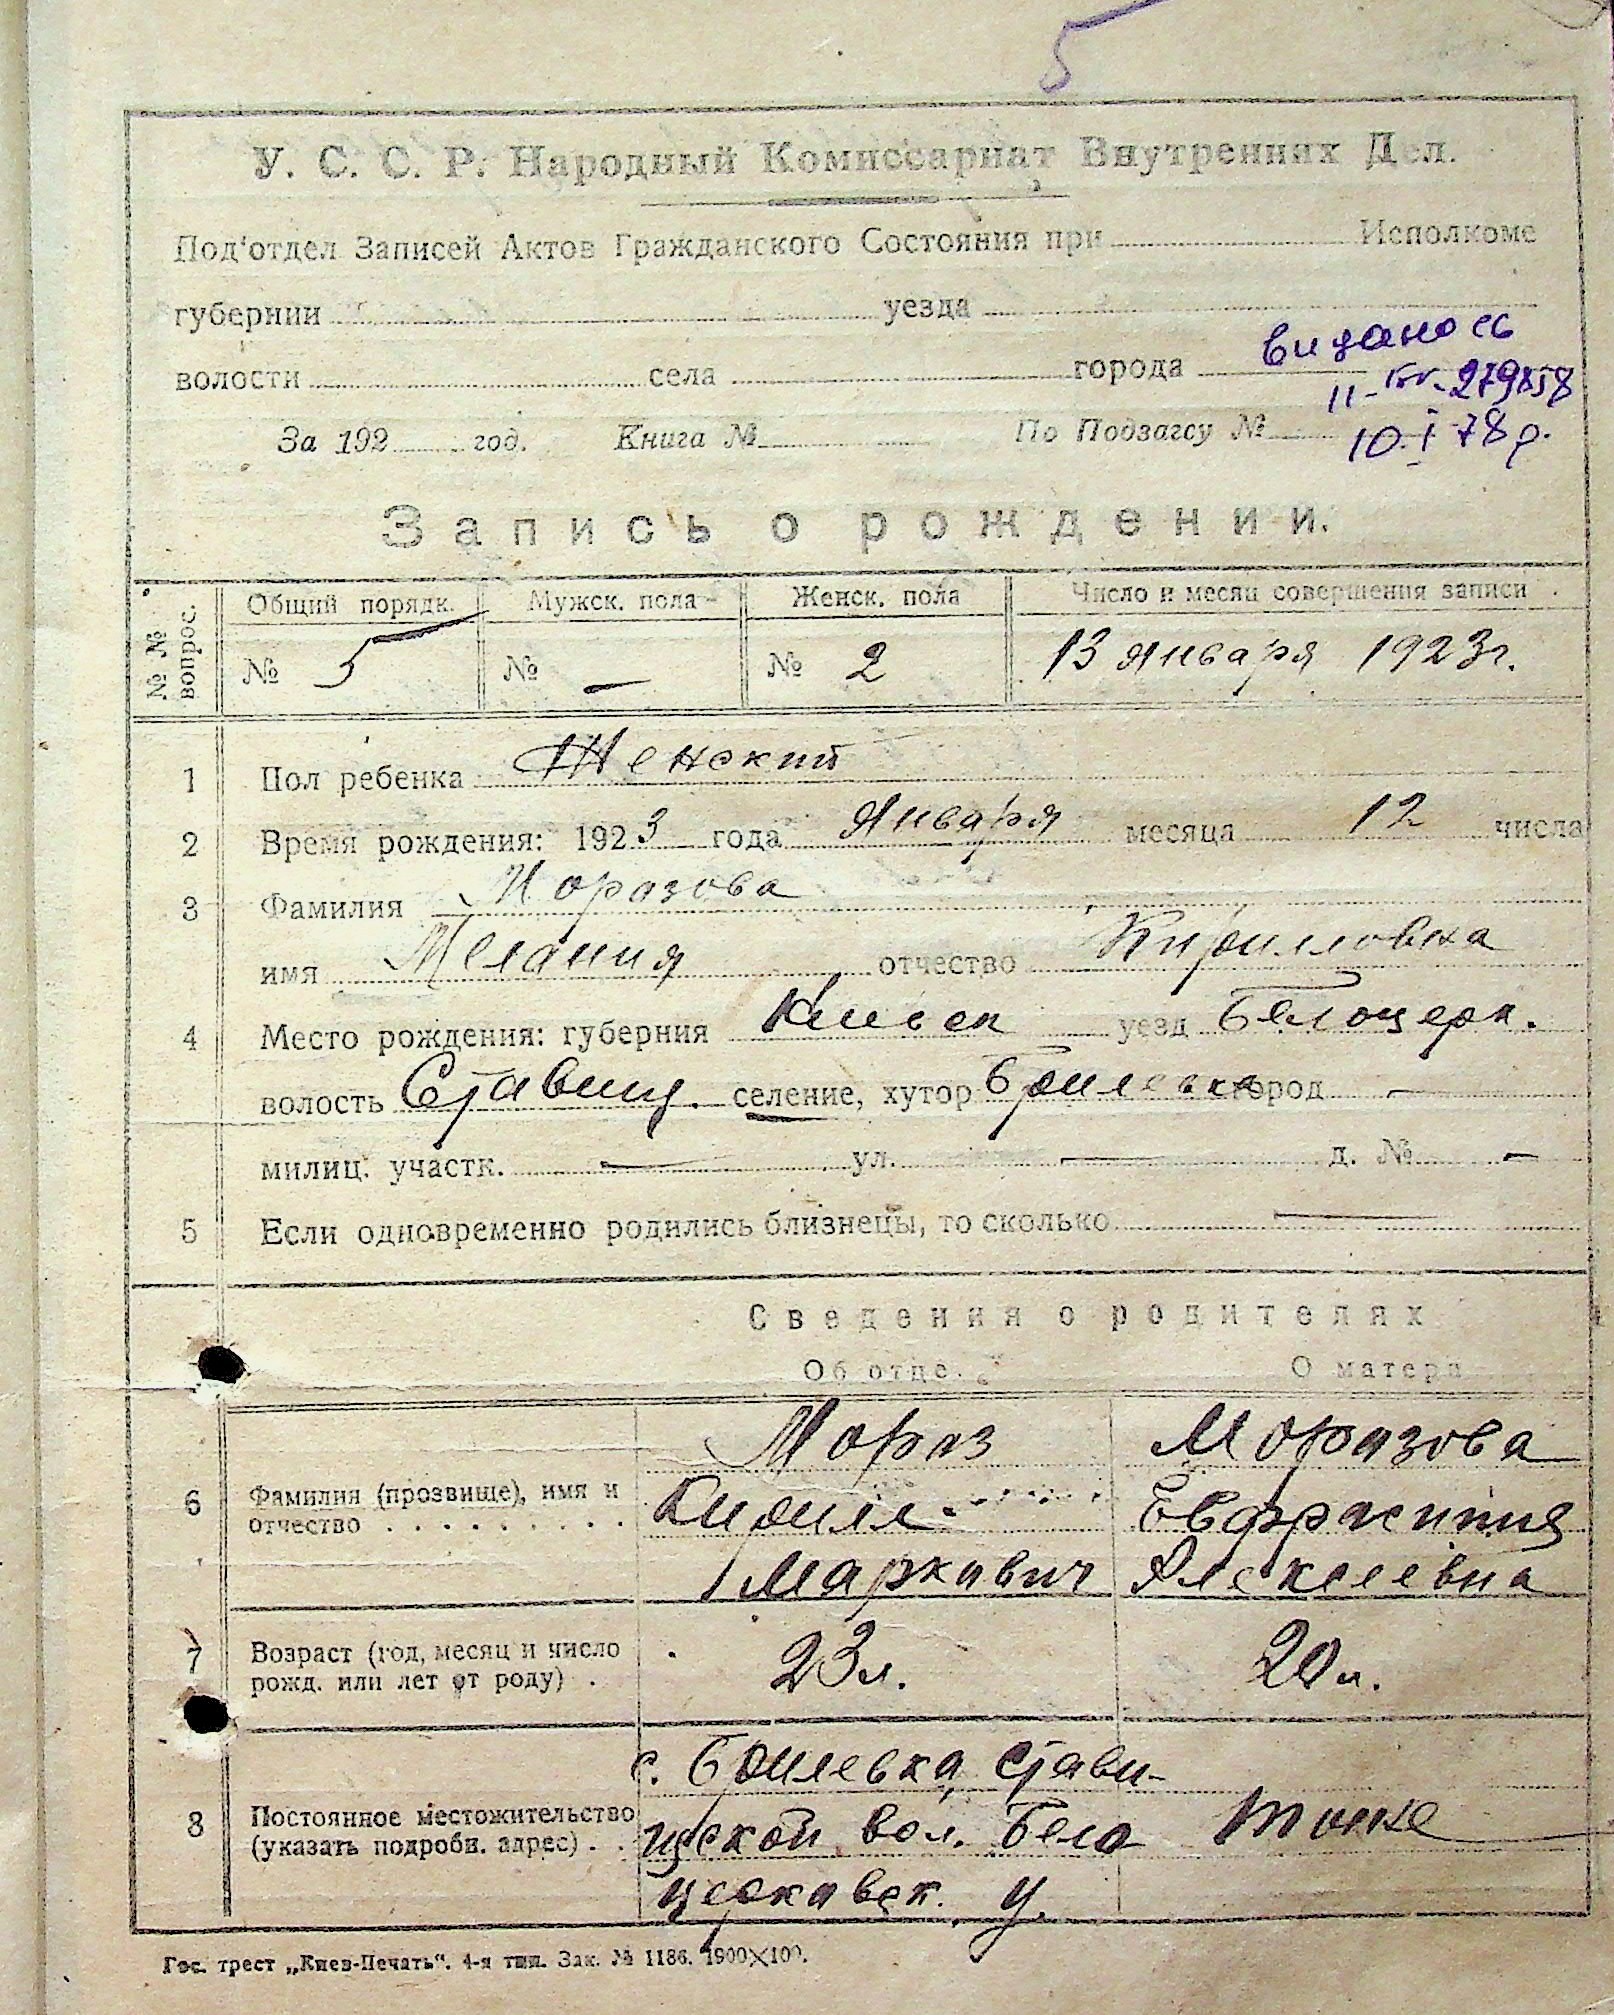 5
У. С. С. Р. Народный Комиссариат Внутренних Дел.
Под'отдел Записей Актов Гражданского Состояния при Исполкоме
губернии уезда
волости села города
видано св
II- 279858
10.I 78 р.
За 192 год. Книга № По Подзагсу №
Запись о рождении.
№ № вопрос. Общий порядк. Мужск. пола Женск. пола Число и месяц совершения записи
№ 5 № — № 2 13 Января 1923 г.
1 Пол ребенка Женский
2 Время рождения: 1923 года Января месяца 12 числа
3 Фамилия Моразова
имя Мелания отчество Кирилловна
4 Место рождения: губерния Киевск уезд Белоцерк.
волость Ставищ. селение, хутор Брилевка город —
милиц. участк. — ул. — д. № —
5 Если одновременно родились близнецы, то сколько —
Сведения о родителях
Об отце. О матери
Мораз Моразова
6 Фамилия (прозвище), имя и отчество Кирилл Евфросиния
Маркавич Алексеевна
7 Возраст (год, месяц и число рожд. или лет от роду) 23 л. 20 л.
с. Брилевка, Стави-
8 Постоянное местожительство (указать подробн. адрес) щской вол. Бело тоже
церкавск. у.
Гос. трест „Киев-Печать“. 4-я тип. Зак. № 1186. 1900×100.